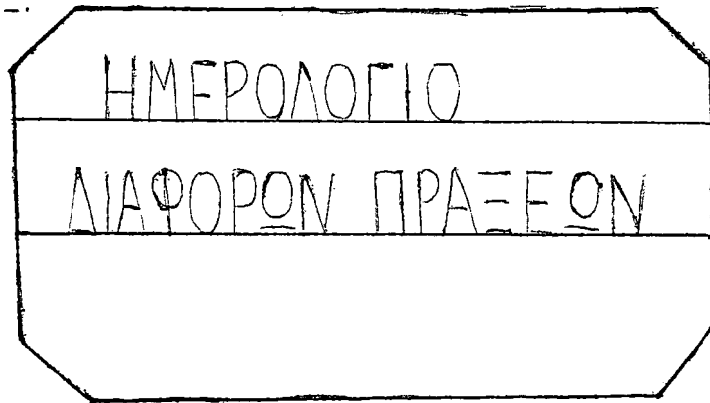 ΗΜΕΡΟΛΟΓΙΟ
ΔΙΑΦΟΡΩΝ ΠΡΑΞΕΩΝ